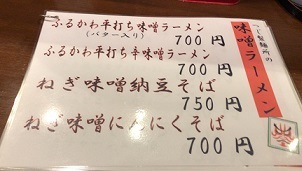 つじ製麺所の
味噌ラーメン
ふるかわ平打ち味噌ラーメン
(バター入り)
700円
ふるかわ平打ち辛味噌ラーメン
700円
ねぎ味噌納豆そば
750円
ねぎ味噌にんにくそば
700円